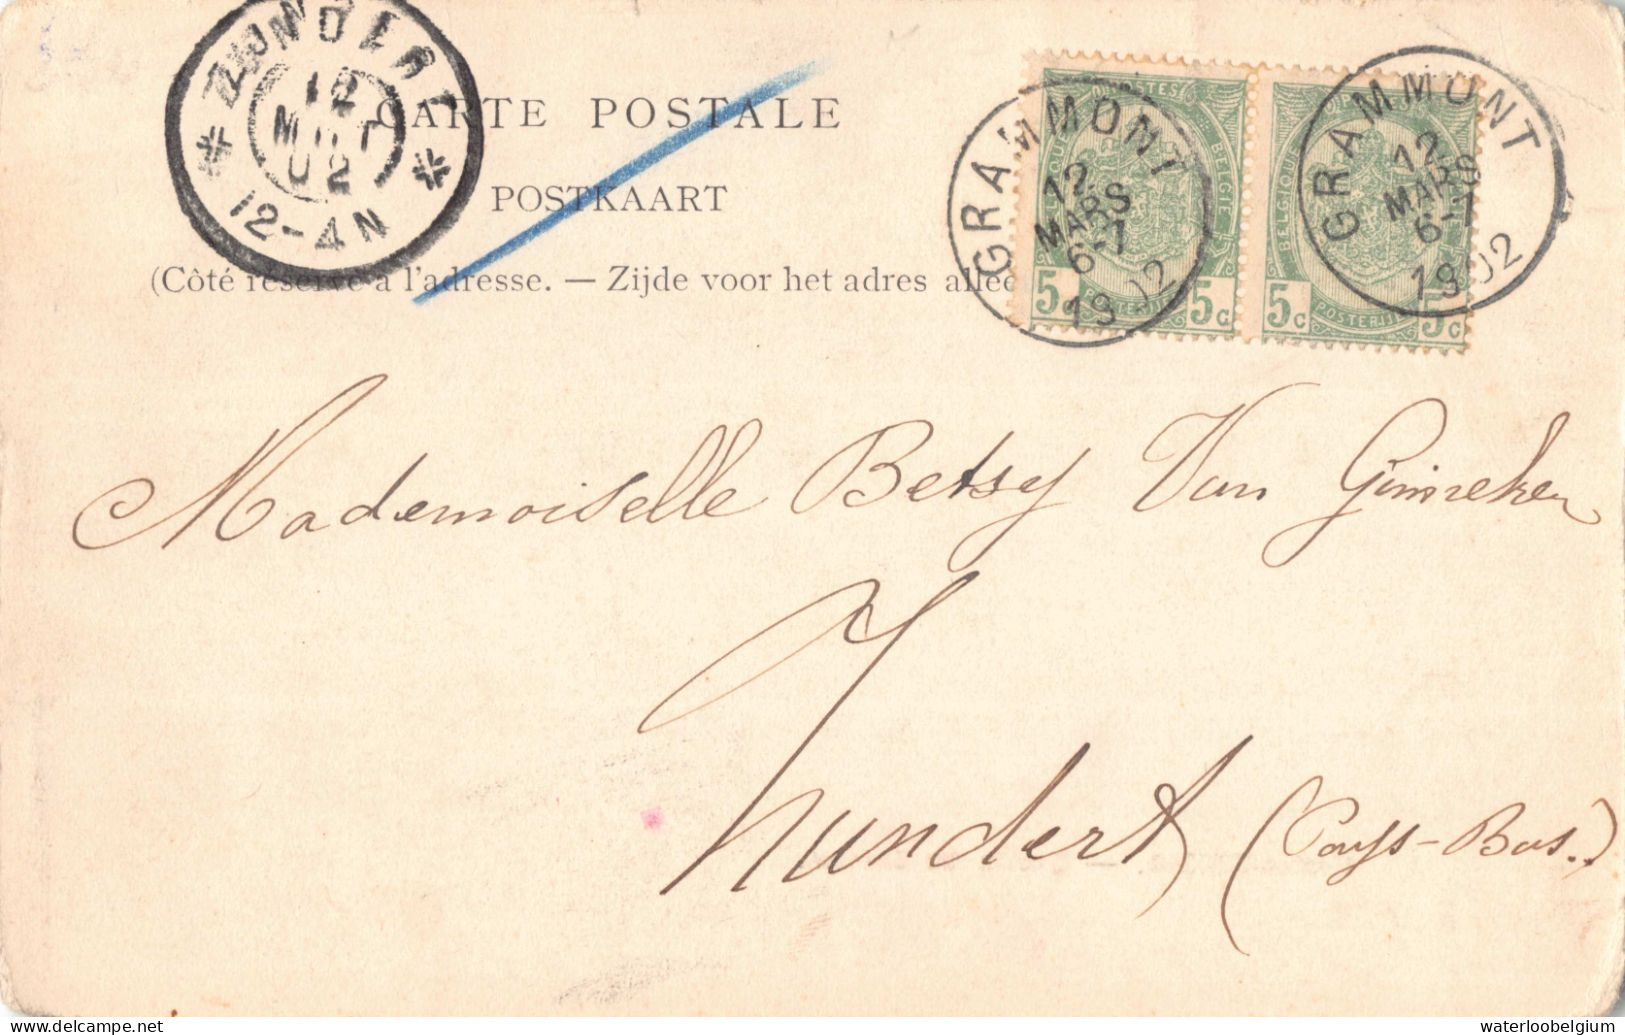 ZUNDERT
12
MRT
02
12-4N
CARTE POSTALE
POSTKAART
(Côté réservé à l'adresse. — Zijde voor het adres allee
GRAMMONT
12
MARS
6-7
1902
GRAMMONT
12
MARS
6-7
1902
BELGIQUE POSTES BELGIË
POSTERIJEN
5c 5c
BELGIQUE
POSTERIJEN
5c 5c
Mademoiselle Betsy Van Ginneken
Zundert (Pays-Bas.)
waterloobelgium